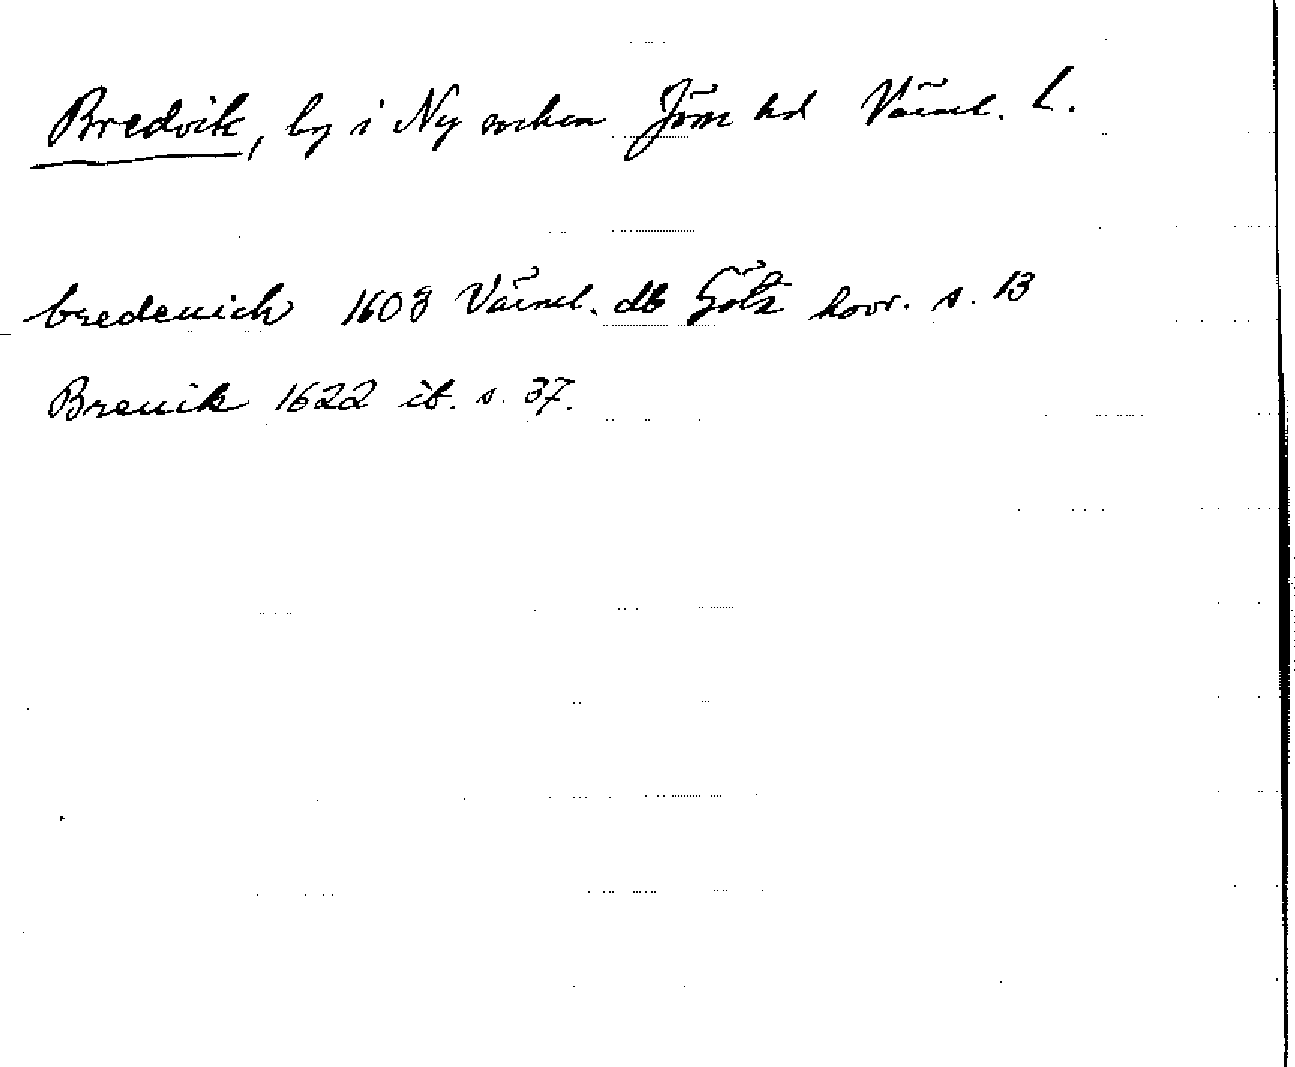 Bredvik, by i Ny socken Jösse hd Värml. L.
bredeuich 1603 Värml. db Götal hovr. s. 13
Breuik 1622 ib. s. 37.